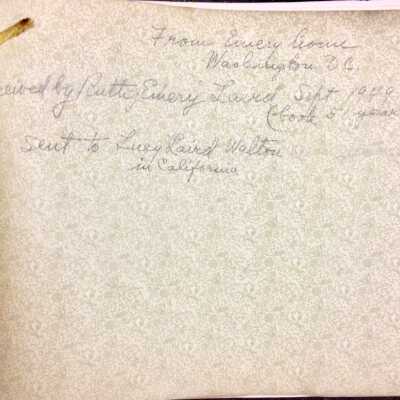 From Emery home
Washington D.C.
by Ruth Emery Laird Sept 1949
(book 5 years
Sent to Lucy Laird Walton
in California